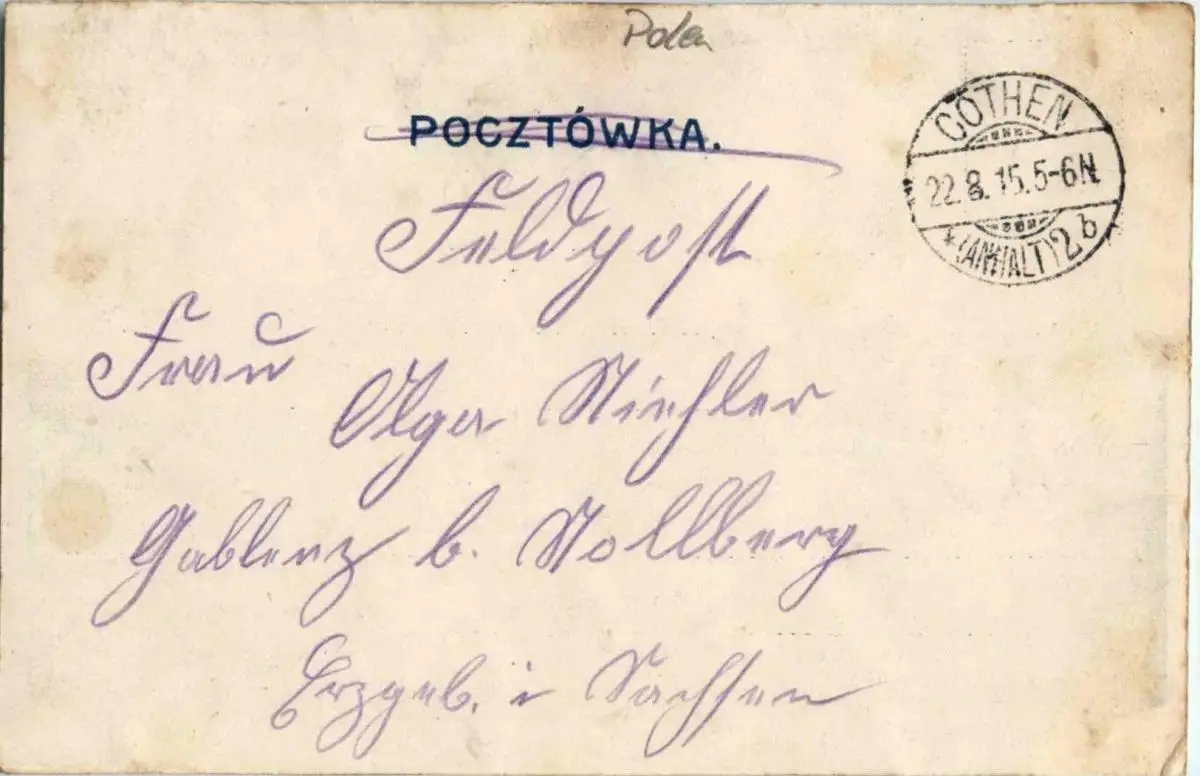 Polen
POCZTÓWKA.
CÖTHEN
22.8.15.5-6N.
*(ANHALT)2b
Feldpost
Frau
Olga Stiehler
Gablenz b. Stollberg
Erzgeb. i Sachsen